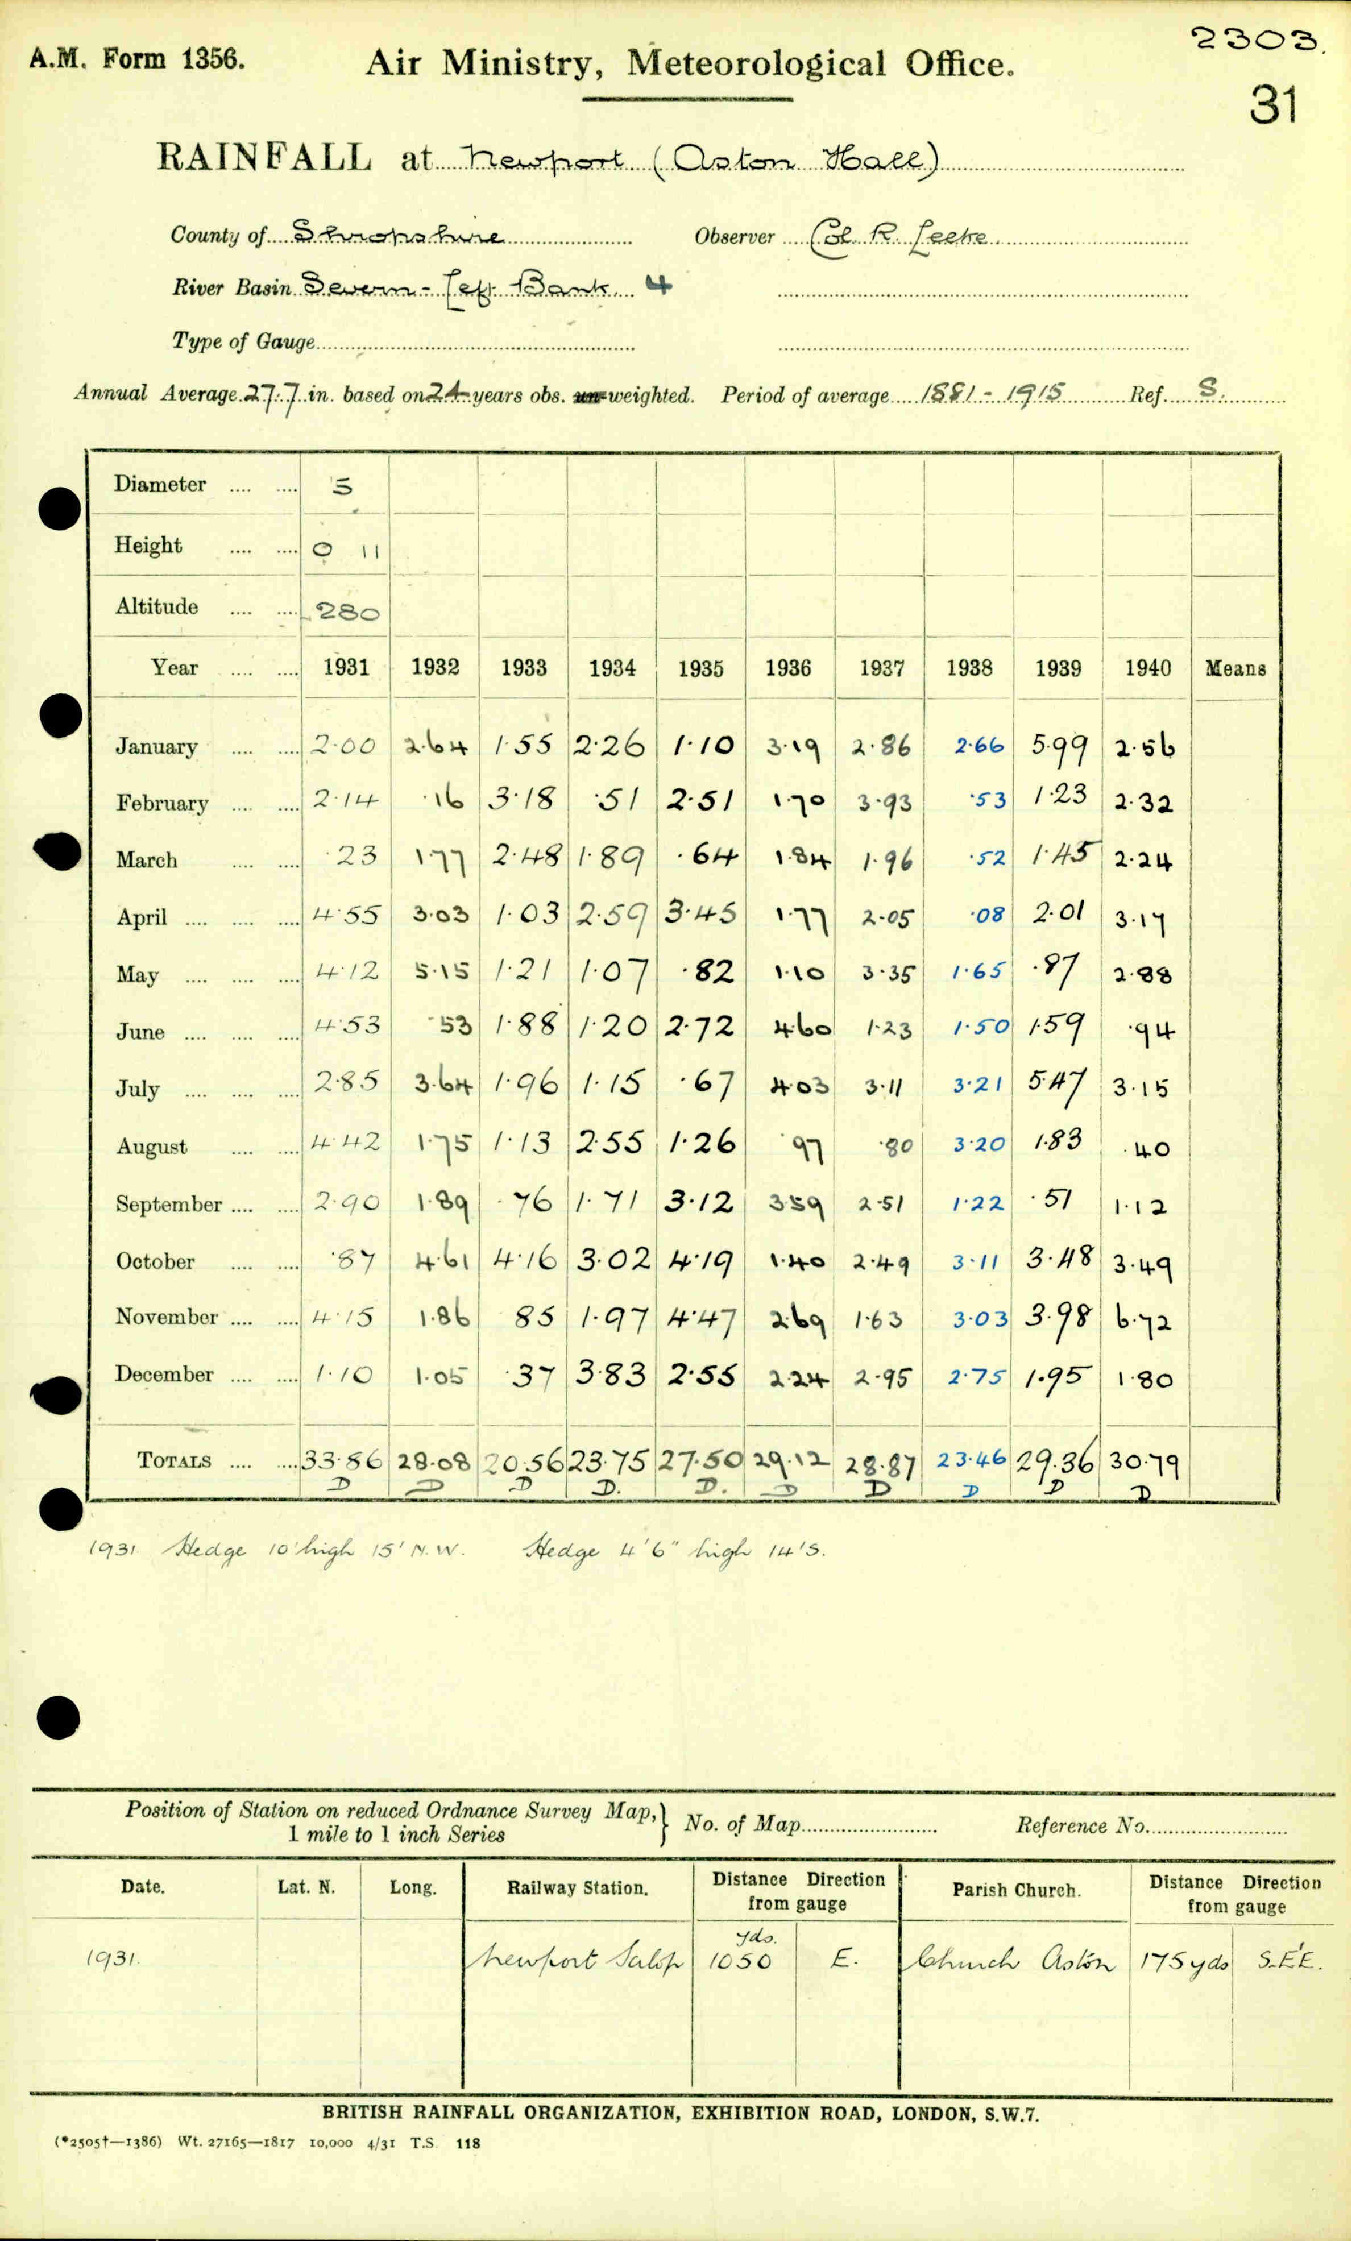 2303.
A.M. Form 1356. Air Ministry, Meteorological Office.
31
RAINFALL at Newport (Aston Hall)
County of Shropshire Observer Col. R. Leeke.
River Basin Severn - Left Bank 4
Type of Gauge
Annual Average 27.7 in. based on 24 years obs. un-weighted. Period of average 1881 - 1915 Ref. S.
Diameter .... .... 5
Height .... .... 0 11
Altitude .... .... 280
Year .... .... 1931 1932 1933 1934 1935 1936 1937 1938 1939 1940 Means
January .... .... 2.00 2.64 1.55 2.26 1.10 3.19 2.86 2.66 5.99 2.56
February .... .... 2.14 .16 3.18 .51 2.51 1.70 3.93 .53 1.23 2.32
March .... .... .23 1.77 2.48 1.89 .64 1.84 1.96 .52 1.45 2.24
April .... .... .... 4.55 3.03 1.03 2.59 3.45 1.77 2.05 .08 2.01 3.17
May .... .... .... 4.12 5.15 1.21 1.07 .82 1.10 3.35 1.65 .87 2.88
June .... .... .... 4.53 .53 1.88 1.20 2.72 4.60 1.23 1.50 1.59 .94
July .... .... .... 2.85 3.64 1.96 1.15 .67 4.03 3.11 3.21 5.47 3.15
August .... .... 4.42 1.75 1.13 2.55 1.26 .97 .80 3.20 1.83 .40
September .... .... 2.90 1.89 .76 1.71 3.12 3.59 2.51 1.22 .51 1.12
October .... .... .87 4.61 4.16 3.02 4.19 1.40 2.49 3.11 3.48 3.49
November .... .... 4.15 1.86 .85 1.97 4.47 2.69 1.63 3.03 3.98 6.72
December .... .... 1.10 1.05 .37 3.83 2.55 2.24 2.95 2.75 1.95 1.80
TOTALS .... .... 33.86 28.08 20.56 23.75 27.50 29.12 28.87 23.46 29.36 30.79
D D D D. D. D D D D D
1931 Hedge 10' high 15' N.W. Hedge 4'6" high 14' S.
Position of Station on reduced Ordnance Survey Map,} No. of Map Reference No.
1 mile to 1 inch Series
Date. Lat. N. Long. Railway Station. Distance Direction from gauge Parish Church. Distance Direction from gauge
yds.
1931. Newport Salop 1050 E. Church Aston 175 yds S.E'E.
BRITISH RAINFALL ORGANIZATION, EXHIBITION ROAD, LONDON, S.W.7.
(*2505†—1386) Wt. 27165—1817 10,000 4/31 T.S. 118